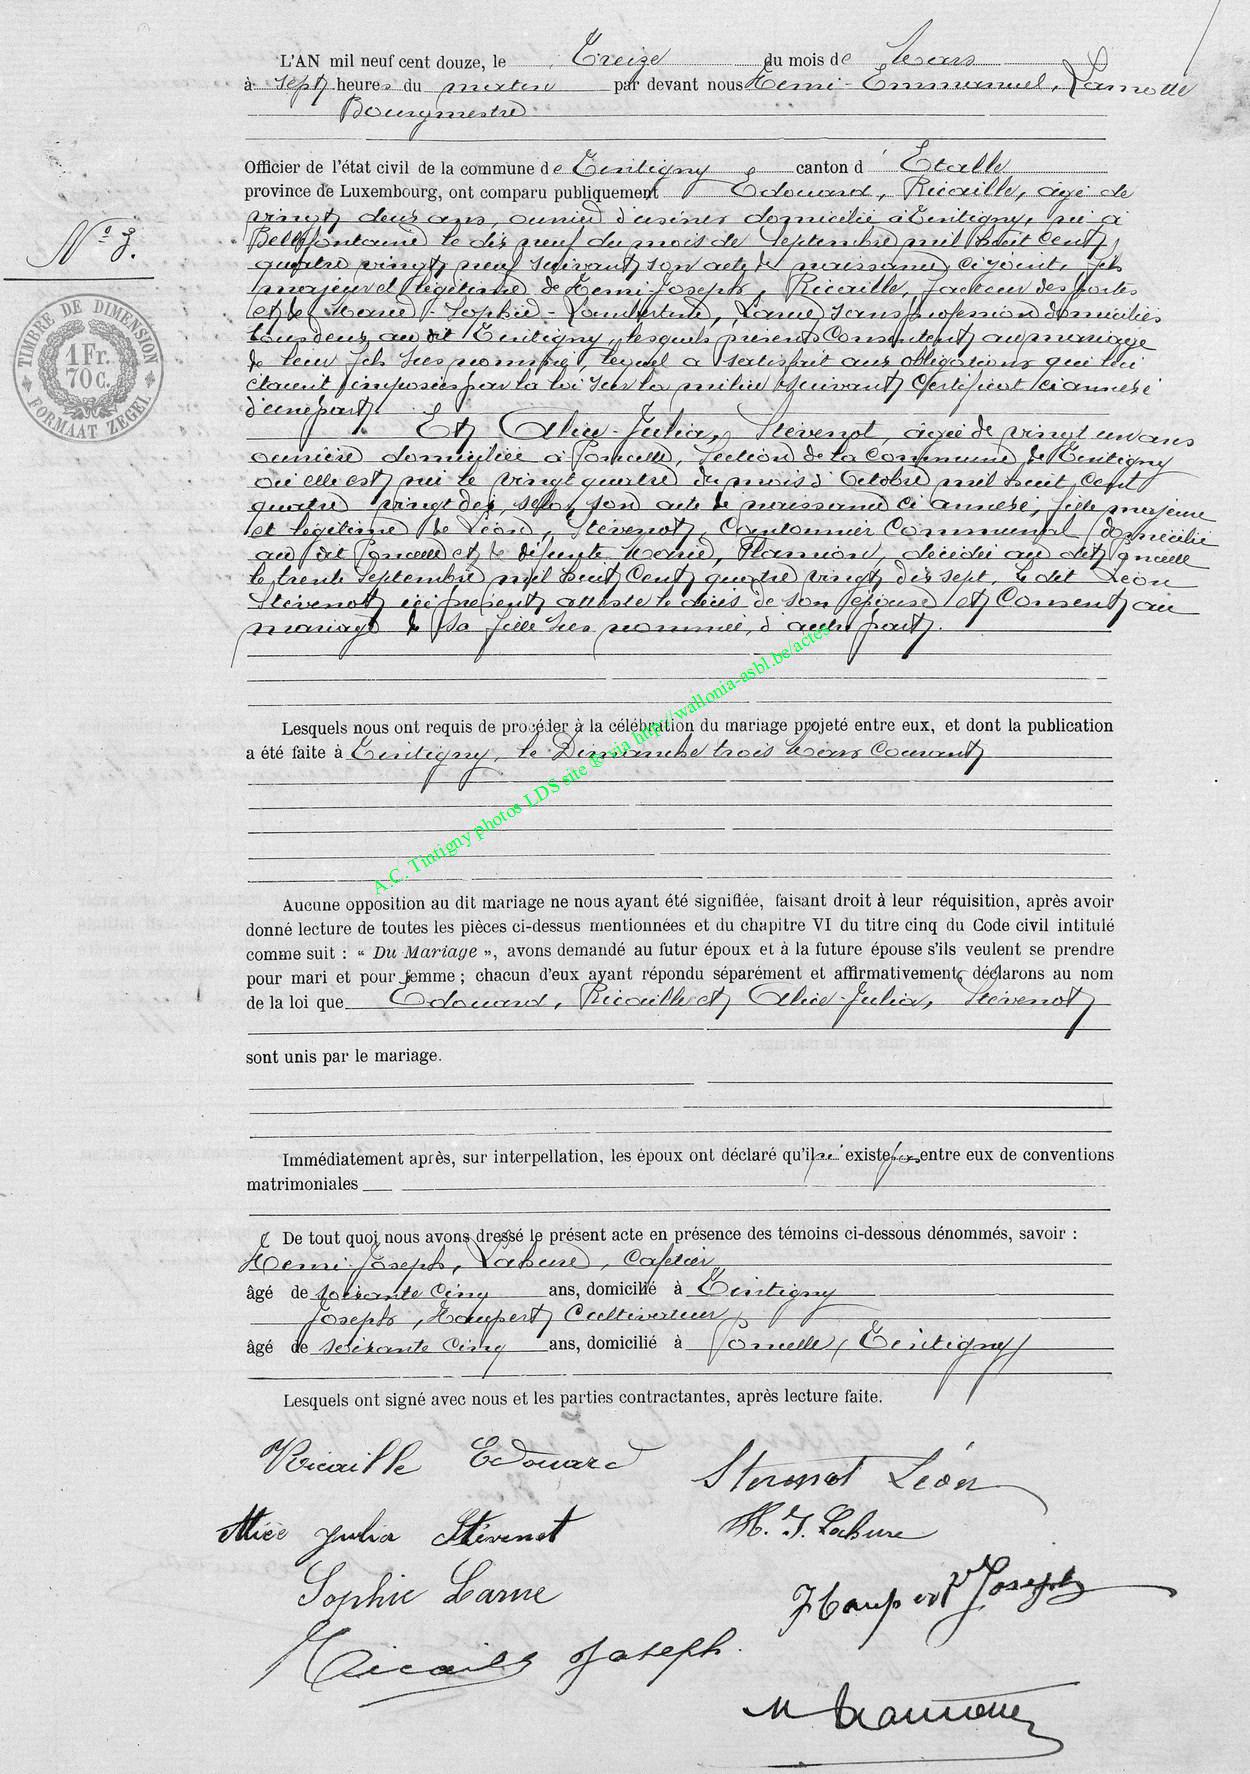 L'AN mil neuf cent douze, le Treize du mois de Mars
à sept heures du matin par devant nous Henri-Emmanuel, Lamotte
Bourgmestre
Officier de l'état civil de la commune de Tintigny canton d'Etalle
province de Luxembourg, ont comparu publiquement Edouard, Ricaille, âgé de
vingt deux ans, ouvrier d'usines domicilié à Tintigny, né à
Bellefontaine le dix neuf du mois de Septembre mil huit cent
quatre vingt neuf suivant son acte de naissance ci joint, fils
majeur et légitime de Henri-Joseph, Ricaille, facteur des postes
et de Marie-Sophie-Lambertine, Larue sans profession domiciliés
tous deux au dit Tintigny, lesquels présents consentent au mariage
de leur fils sus nommé, lequel a satisfait aux obligations qui lui
étaient imposées par la loi sur la milice suivant certificat ci annexé
d'une part.
N° 3.
TIMBRE DE DIMENSION
1 Fr.
70 c.
FORMAAT ZEGEL
Et Alice-Julia, Stévenot, âgée de vingt un ans
ouvrière domiciliée à Poncelle, Section de la Commune de Tintigny
où elle est née le vingt quatre du mois d'Octobre mil huit cent
quatre vingt dix, selon son acte de naissance ci annexé, fille majeure
et légitime de Léon, Stévenot, Cantonnier Communal domicilié
au dit Poncelle et de défunte Marie, Flamion, décédée au dit Poncelle
le trente Septembre mil huit cent quatre vingt dix sept, le dit Léon
Stévenot ici présent atteste le décès de son épouse et consent au
mariage de sa fille sus nommée, d'autre part.
Lesquels nous ont requis de procéder à la célébration du mariage projeté entre eux, et dont la publication
a été faite à Tintigny, le Dimanche trois Mars courant
A.C. Tintigny photos LDS site & via http://wallonia-asbl.be/actes
Aucune opposition au dit mariage ne nous ayant été signifiée, faisant droit à leur réquisition, après avoir
donné lecture de toutes les pièces ci-dessus mentionnées et du chapitre VI du titre cinq du Code civil intitulé
comme suit : « Du Mariage », avons demandé au futur époux et à la future épouse s'ils veulent se prendre
pour mari et pour femme ; chacun d'eux ayant répondu séparément et affirmativement, déclarons au nom
de la loi que Edouard, Ricaille et Alice-Julia, Stévenot
sont unis par le mariage.
Immédiatement après, sur interpellation, les époux ont déclaré qu'il n'existe pas entre eux de conventions
matrimoniales
De tout quoi nous avons dressé le présent acte en présence des témoins ci-dessous dénommés, savoir :
Henri-Joseph, Lahure, Cafetier
âgé de soixante cinq ans, domicilié à Tintigny
Joseph, Haupert Cultivateur
âgé de soixante cinq ans, domicilié à Poncelle (Tintigny)
Lesquels ont signé avec nous et les parties contractantes, après lecture faite.
Ricaille Edouard
Stevenot Léon
Alice Julia Stévenot
H. J. Lahure
Sophie Larue
Haupert Joseph
Ricaille Joseph.
Lamotte